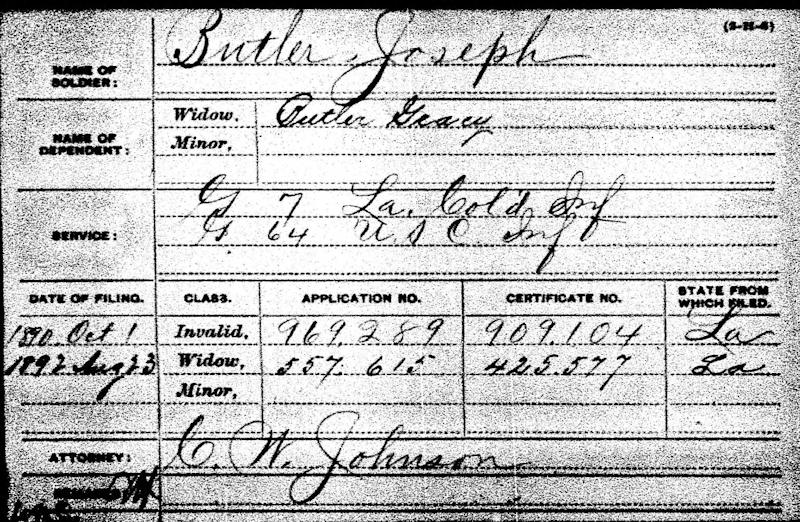 (3-H-6)
NAME OF SOLDIER: Butler, Joseph
NAME OF DEPENDENT: Widow, Butler Gracy
Minor,
SERVICE: G 7 La. Col'd Inf
G 64 U S C Inf
DATE OF FILING. CLASS. APPLICATION NO. CERTIFICATE NO. STATE FROM WHICH FILED.
1890. Oct 1 Invalid, 969.289 909.104 La
Aug 23 Widow, 557.615 425.577 La
Minor,
ATTORNEY: C. W. Johnson
REMARKS: